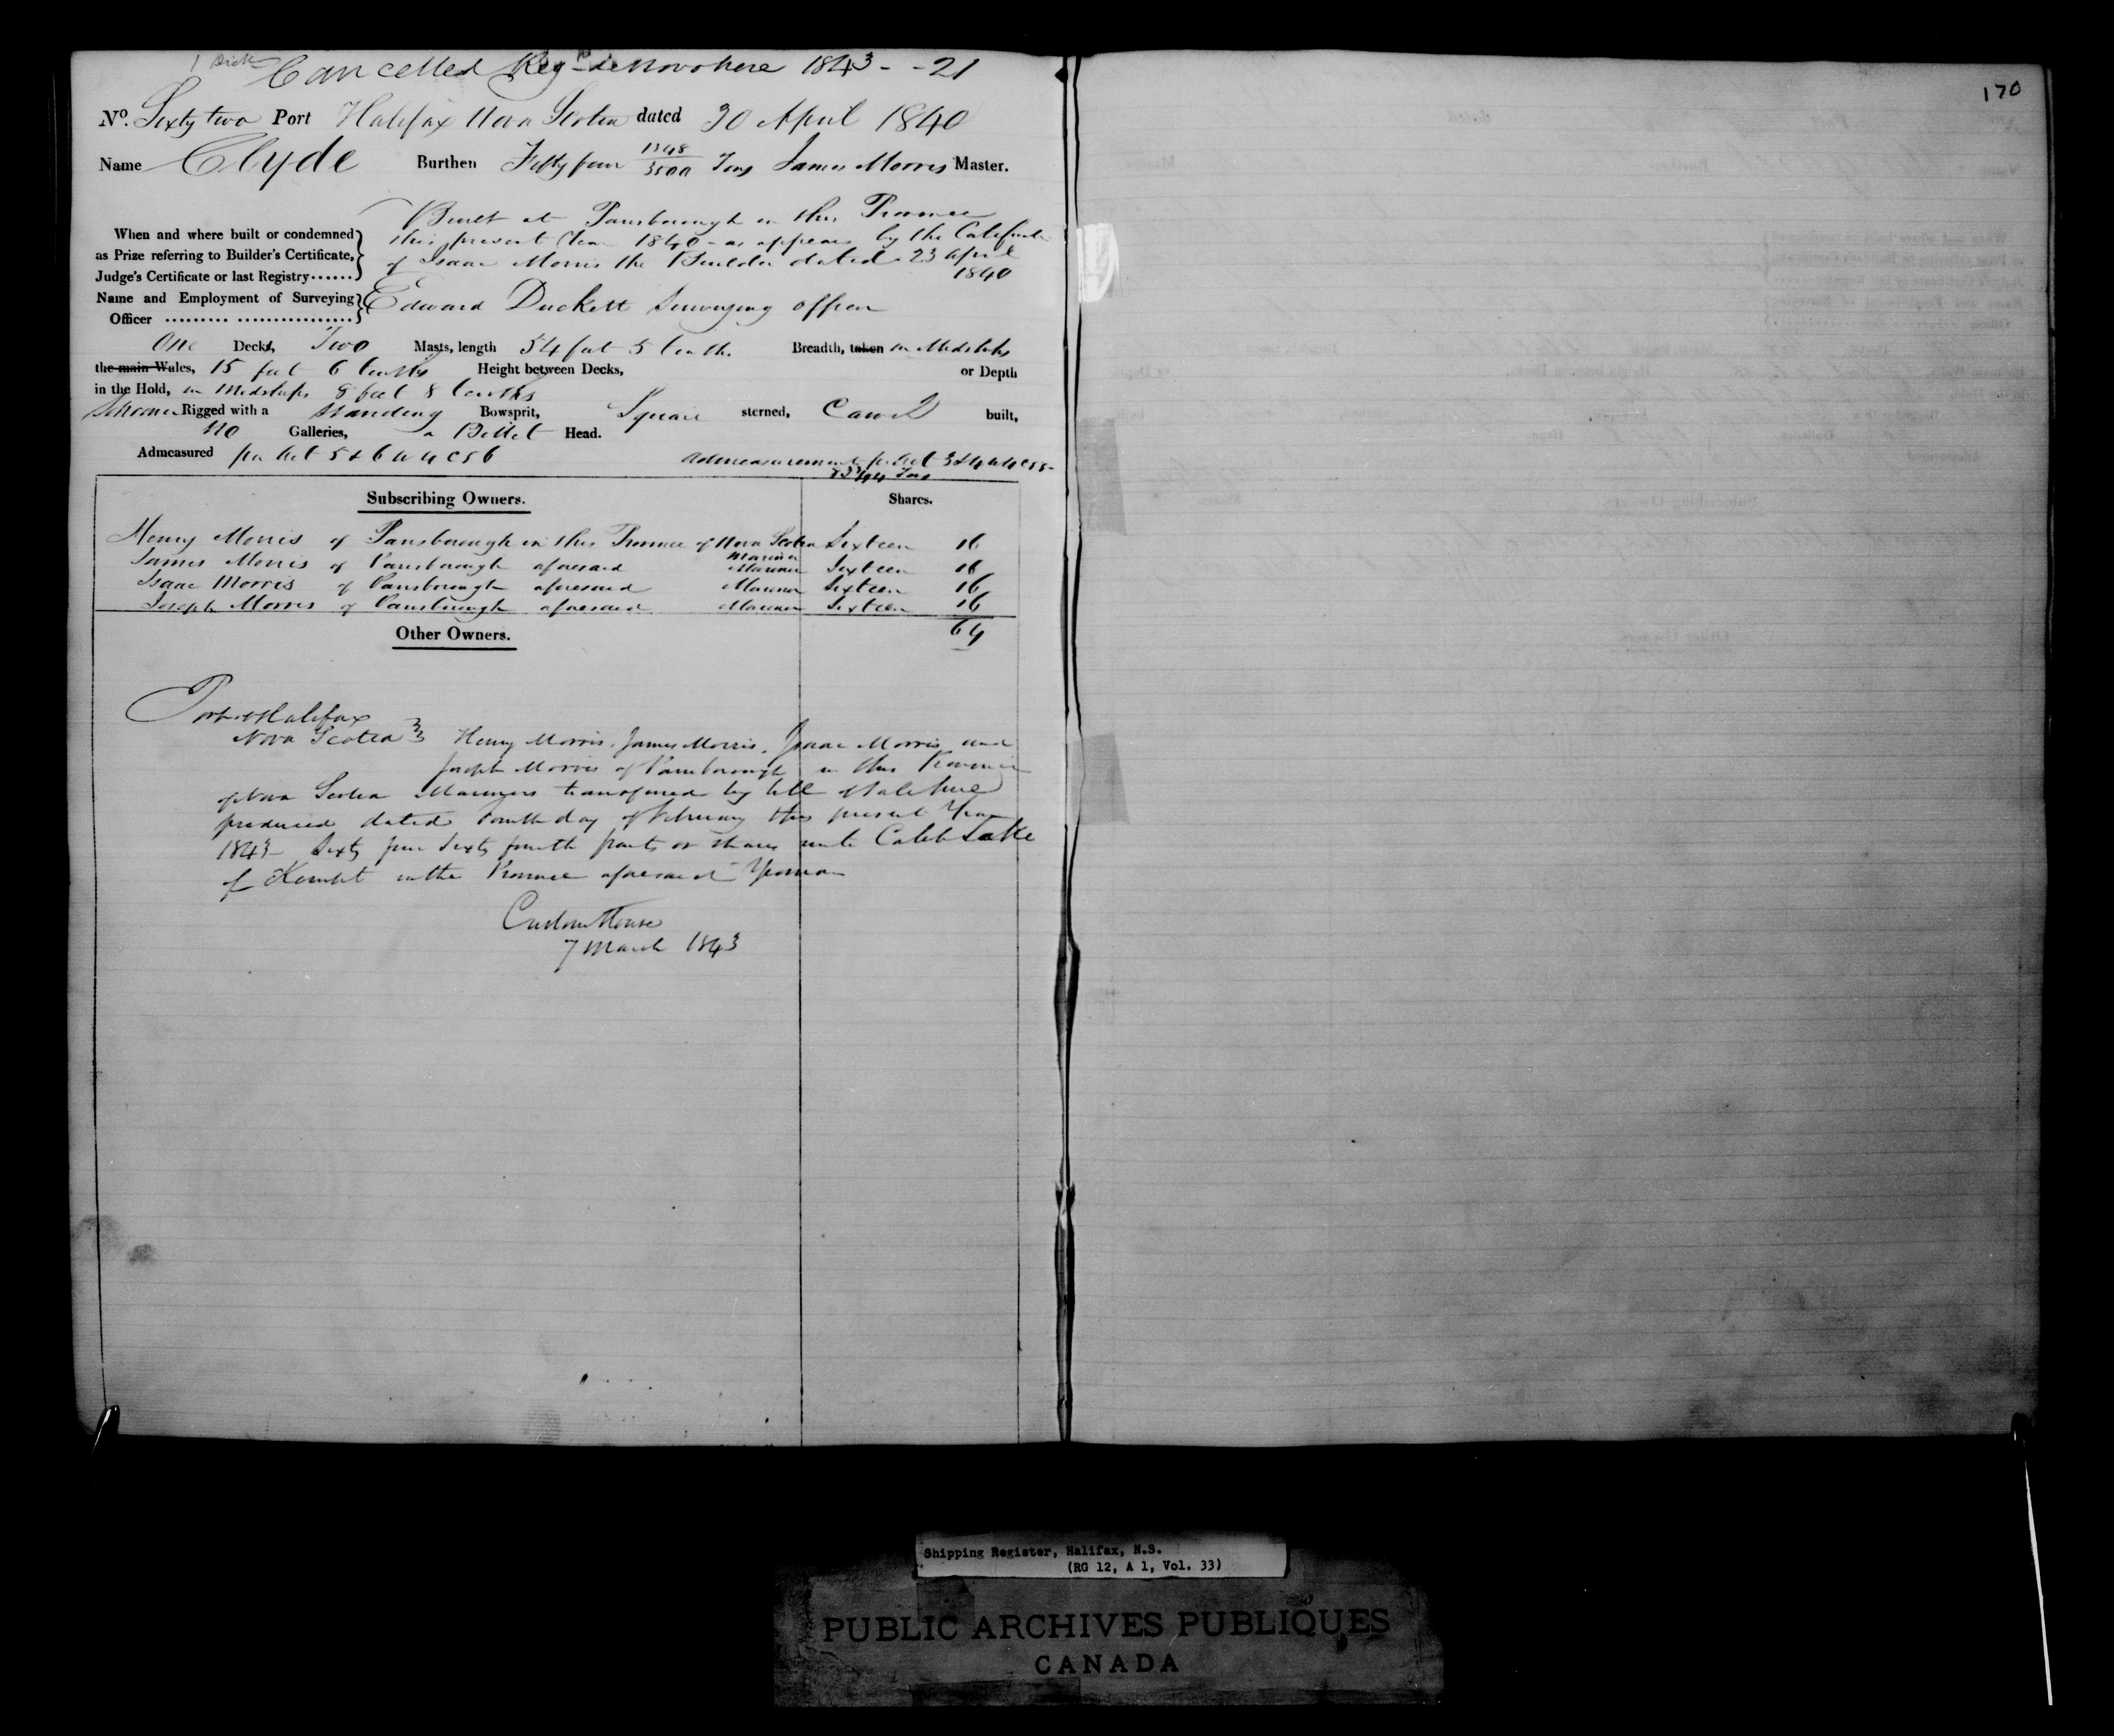 Cancelled Reg<sup>d</sup> de Novo here 1843 - - 21
170
No. Sixty two Port Halifax Nova Scotia dated 30 April 1840
Name Clyde Burthen Fifty four 1348/3500 Tons James Morris Master.
When and where built or condemned as Prize referring to Builder's Certificate, Judge's Certificate or last Registry......
Built at Parrsborough in this Province
this present Year 1840 - as appears by the Certificate
of Isaac Morris the Builder dated 23 April
1840
Name and Employment of Surveying Officer ......... ................
Edward Duckett Surveying officer
One Decks, Two Masts, length 54 feet 5 tenths. Breadth, taken in Midships
the main Wales, 15 feet 6 tenths Height between Decks, or Depth
in the Hold, in Midships 8 feet 8 tenths
Schooner Rigged with a standing Bowsprit, Square sterned, Carvel built,
No Galleries, a Billet Head.
Admeasured per Act 5 & 6 W 4 C 56 Admeasurement pr Act 3 & 4 W 4 C 55 -
Tons
Subscribing Owners. Shares.
Henry Morris of Parrsborough in this Province of Nova Scotia Sixteen 16
Mariner
James Morris of Parrsborough aforesaid Mariner Sixteen 16
Isaac Morris of Parrsborough aforesaid Mariner Sixteen 16
Joseph Morris of Parrsborough aforesaid Mariner Sixteen 16
64
Other Owners.
Port of Halifax
Nova Scotia Henry Morris, James Morris, Isaac Morris and
Joseph Morris of Parrsborough in this Province
of Nova Scotia Mariners transferred by bill of sale here
produced dated Fourth day of February this present Year
1843 - Sixty four Sixty fourth parts or shares unto Caleb Lake
of Kempt in the Province aforesaid Yeoman
Custom House
7 March 1843
Shipping Register, Halifax, N.S.
(RG 12, A 1, Vol. 33)
PUBLIC ARCHIVES PUBLIQUES
CANADA